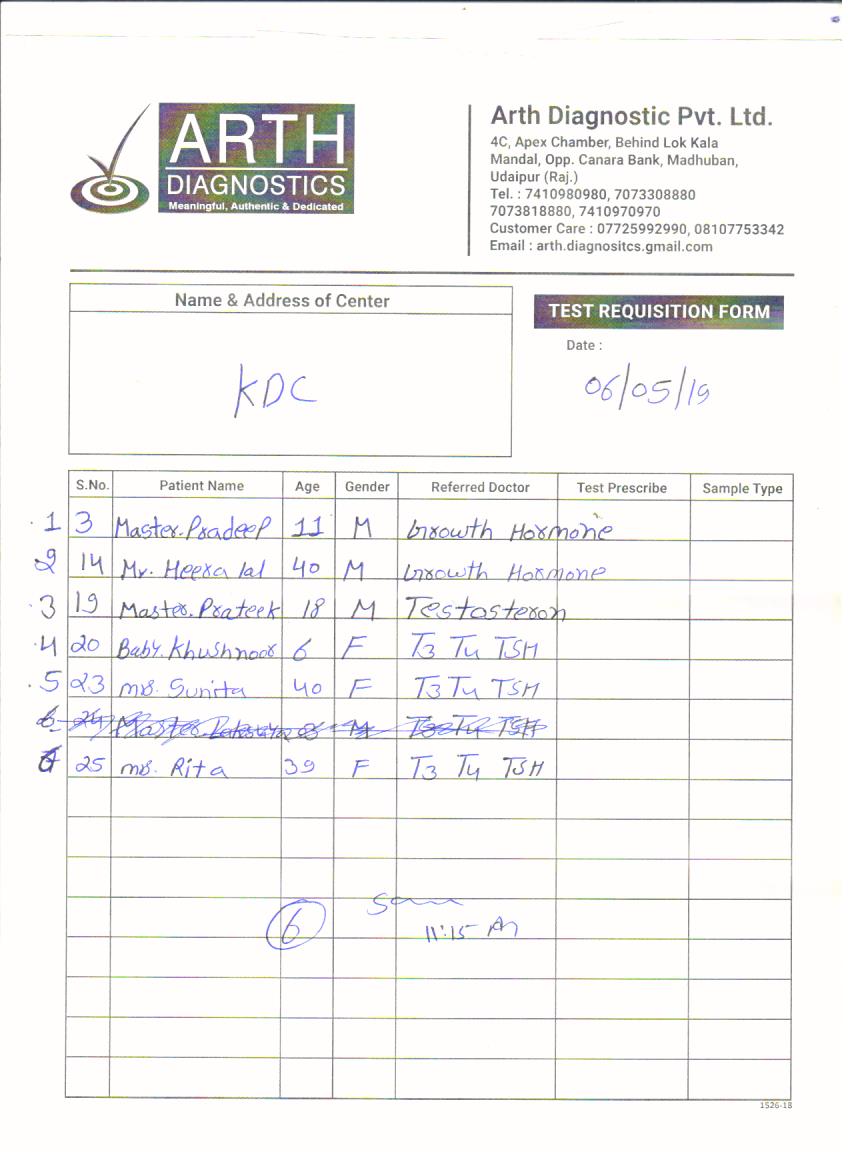 ARTH
DIAGNOSTICS
Meaningful, Authentic & Dedicated
Arth Diagnostic Pvt. Ltd.
4C, Apex Chamber, Behind Lok Kala
Mandal, Opp. Canara Bank, Madhuban,
Udaipur (Raj.)
Tel. : 7410980980, 7073308880
7073818880, 7410970970
Customer Care : 07725992990, 08107753342
Email : arth.diagnositcs.gmail.com
Name & Address of Center
KDC
TEST REQUISITION FORM
Date :
06/05/19
S.No. Patient Name Age Gender Referred Doctor Test Prescribe Sample Type
1 3 Master. Pradeep 11 M Growth Hormone
2 14 Mr. Heera lal 40 M Growth Hormone
3 19 Master. Prateek 18 M Testosteron
4 20 Baby. Khushnoor 6 F T3 T4 TSH
5 23 Ms. Sunita 40 F T3 T4 TSH
6 24 Master M T3 T4 TSH
6 25 Ms. Rita 39 F T3 T4 TSH
6
11:15
1526-18